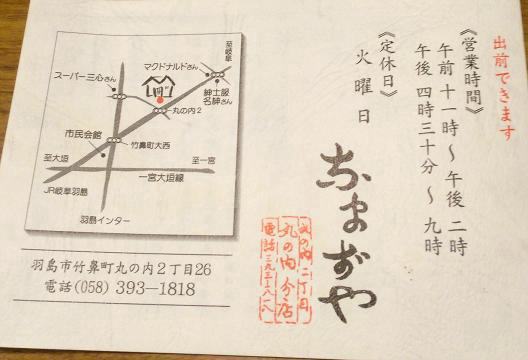 出前できます
《営業時間》
午前 十一時～午後 二時
午後 四時三十分～ 九時
《定休日》
火曜日
なまずや
丸の内二丁目
丸の内分店
電話三九三-一八一八
至岐阜
マクドナルドさん
スーパー三心さん
紳士服
名紳さん
丸の内2
市民会館
竹鼻町大西
至大垣
至一宮
一宮大垣線
JR岐阜羽島
羽島インター
羽島市竹鼻町丸の内2丁目26
電話(058) 393-1818